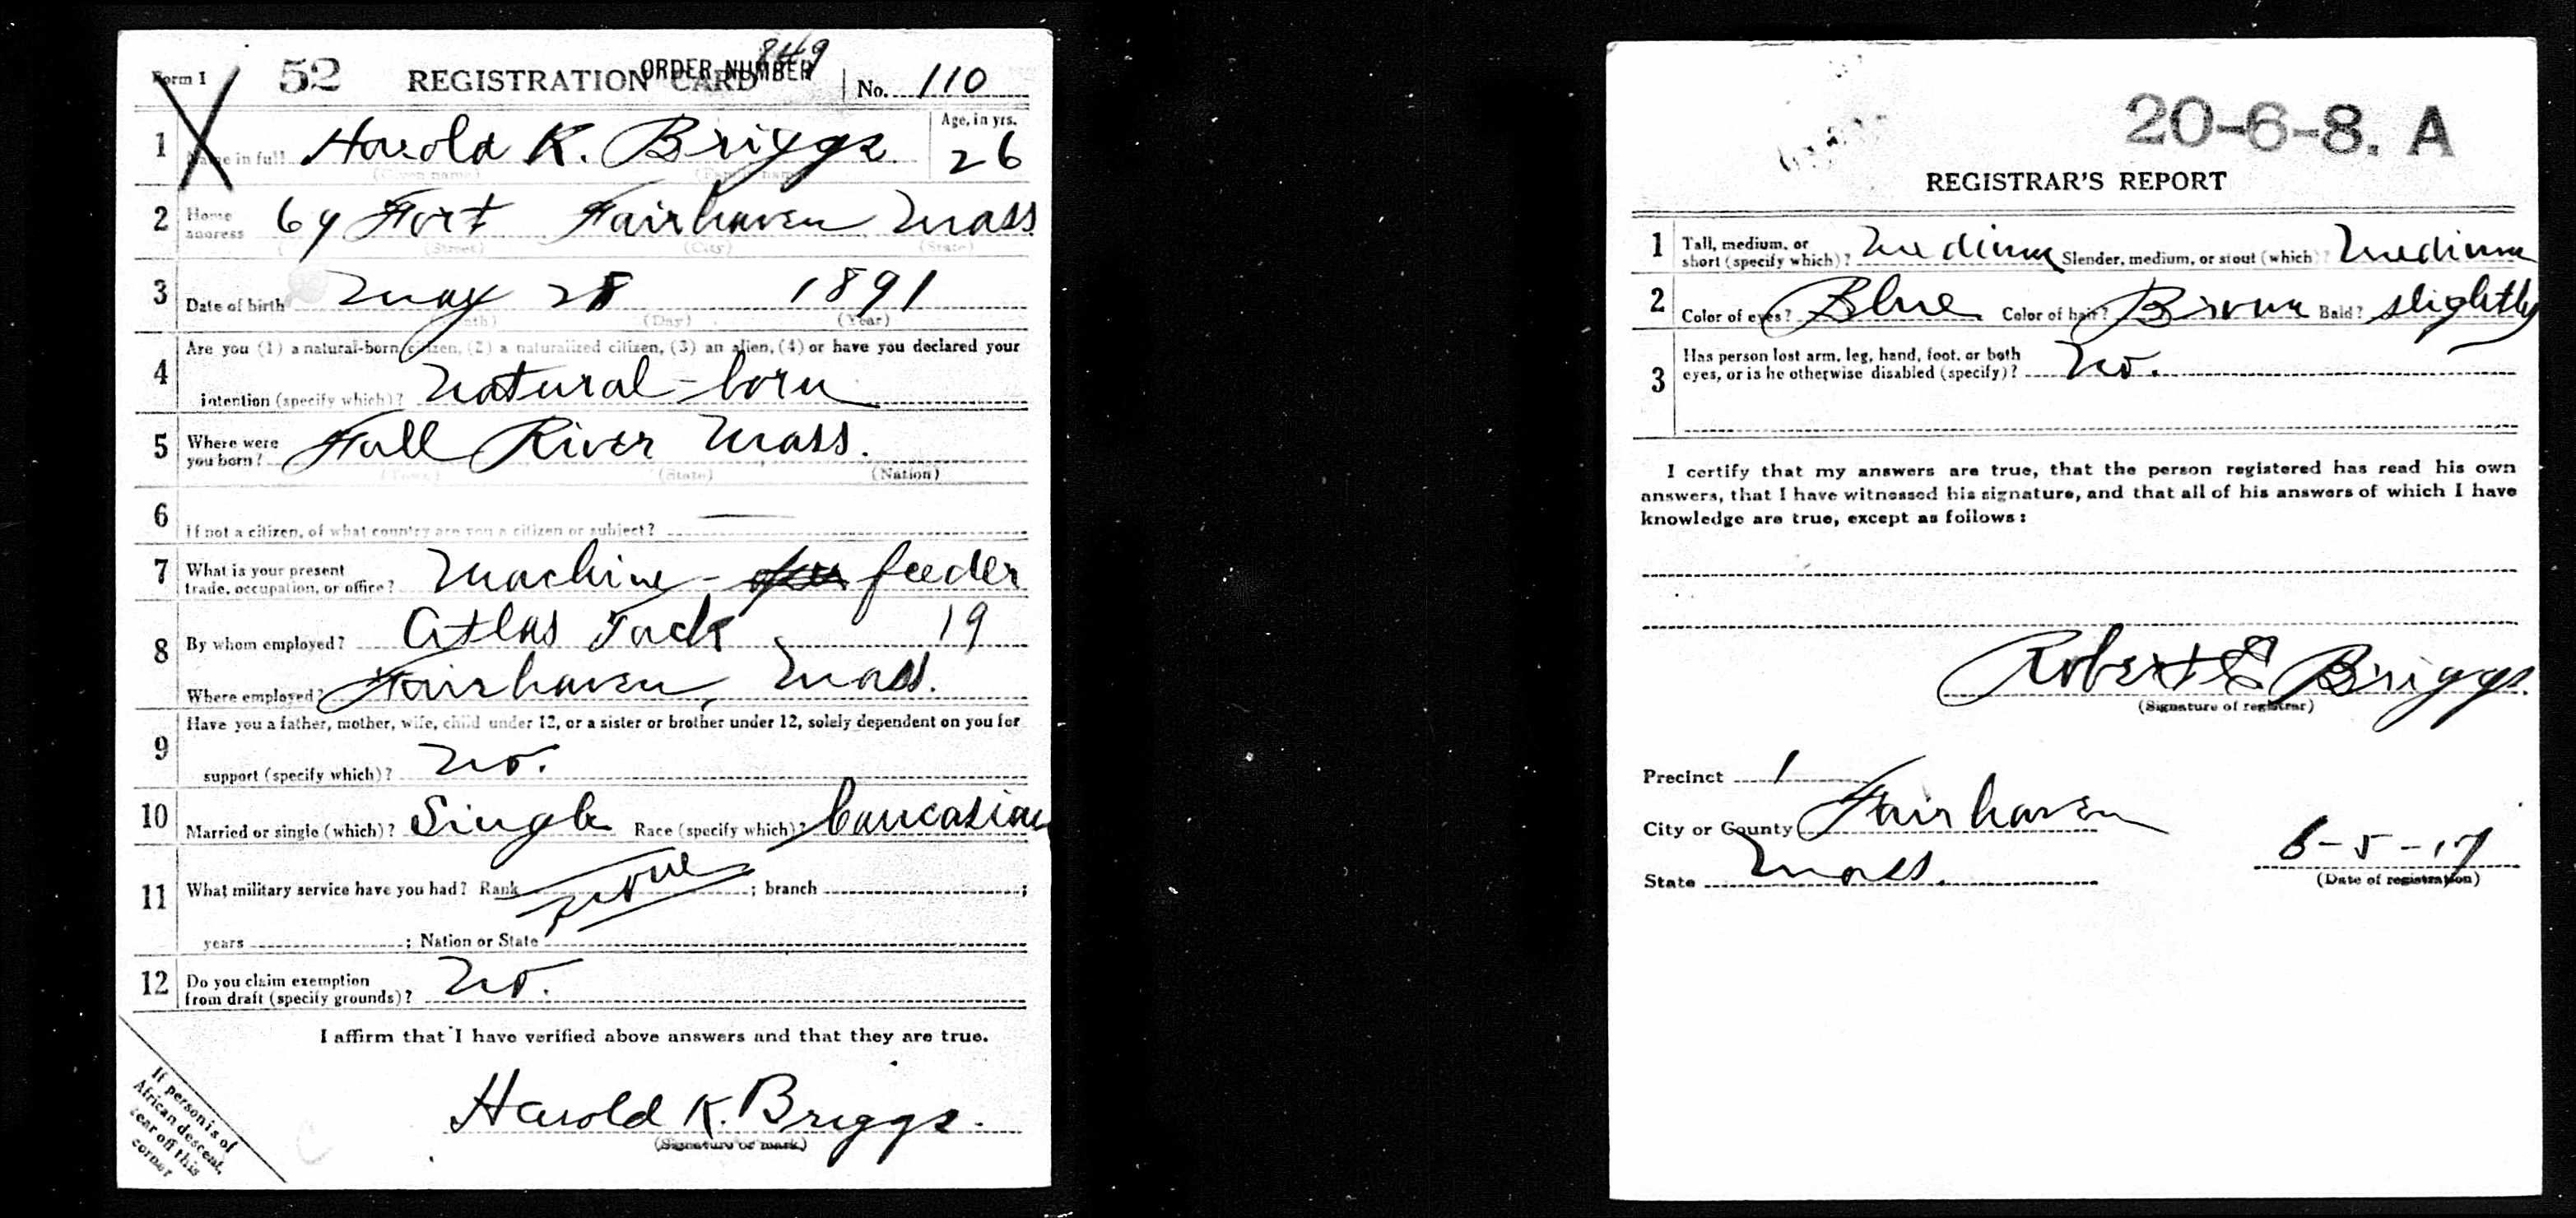 Form 1 52 REGISTRATION CARD ORDER NUMBER 849 No. 110
1 Name in full Harold K. Briggs Age, in yrs. 26
(Given name) (Family name)
2 Home address 64 Fort Fairhaven Mass
(Street) (City) (State)
3 Date of birth May 28 1891
(Month) (Day) (Year)
4 Are you (1) a natural-born citizen, (2) a naturalized citizen, (3) an alien, (4) or have you declared your
intention (specify which)? Natural-born
5 Where were you born? Fall River Mass.
(Town) (State) (Nation)
6 If not a citizen, of what country are you a citizen or subject? —
7 What is your present trade, occupation, or office? Machine - feeder
8 By whom employed? Atlas Tack 19
Where employed? Fairhaven, Mass.
9 Have you a father, mother, wife, child under 12, or a sister or brother under 12, solely dependent on you for
support (specify which)? No.
10 Married or single (which)? Single Race (specify which)? Caucasian
11 What military service have you had? Rank None ; branch ;
years ; Nation or State
12 Do you claim exemption from draft (specify grounds)? No.
I affirm that I have verified above answers and that they are true.
Harold K. Briggs.
(Signature or mark)
If person is of
African descent,
tear off this
corner
20-6-8. A
REGISTRAR'S REPORT
1 Tall, medium, or short (specify which)? Medium Slender, medium, or stout (which)? Medium
2 Color of eyes? Blue Color of hair? Brown Bald? slightly
3 Has person lost arm, leg, hand, foot, or both eyes, or is he otherwise disabled (specify)? No.
I certify that my answers are true, that the person registered has read his own
answers, that I have witnessed his signature, and that all of his answers of which I have
knowledge are true, except as follows:
Robert E Briggs.
(Signature of registrar)
Precinct 1
City or County Fairhaven
State Mass. 6-5-17
(Date of registration)